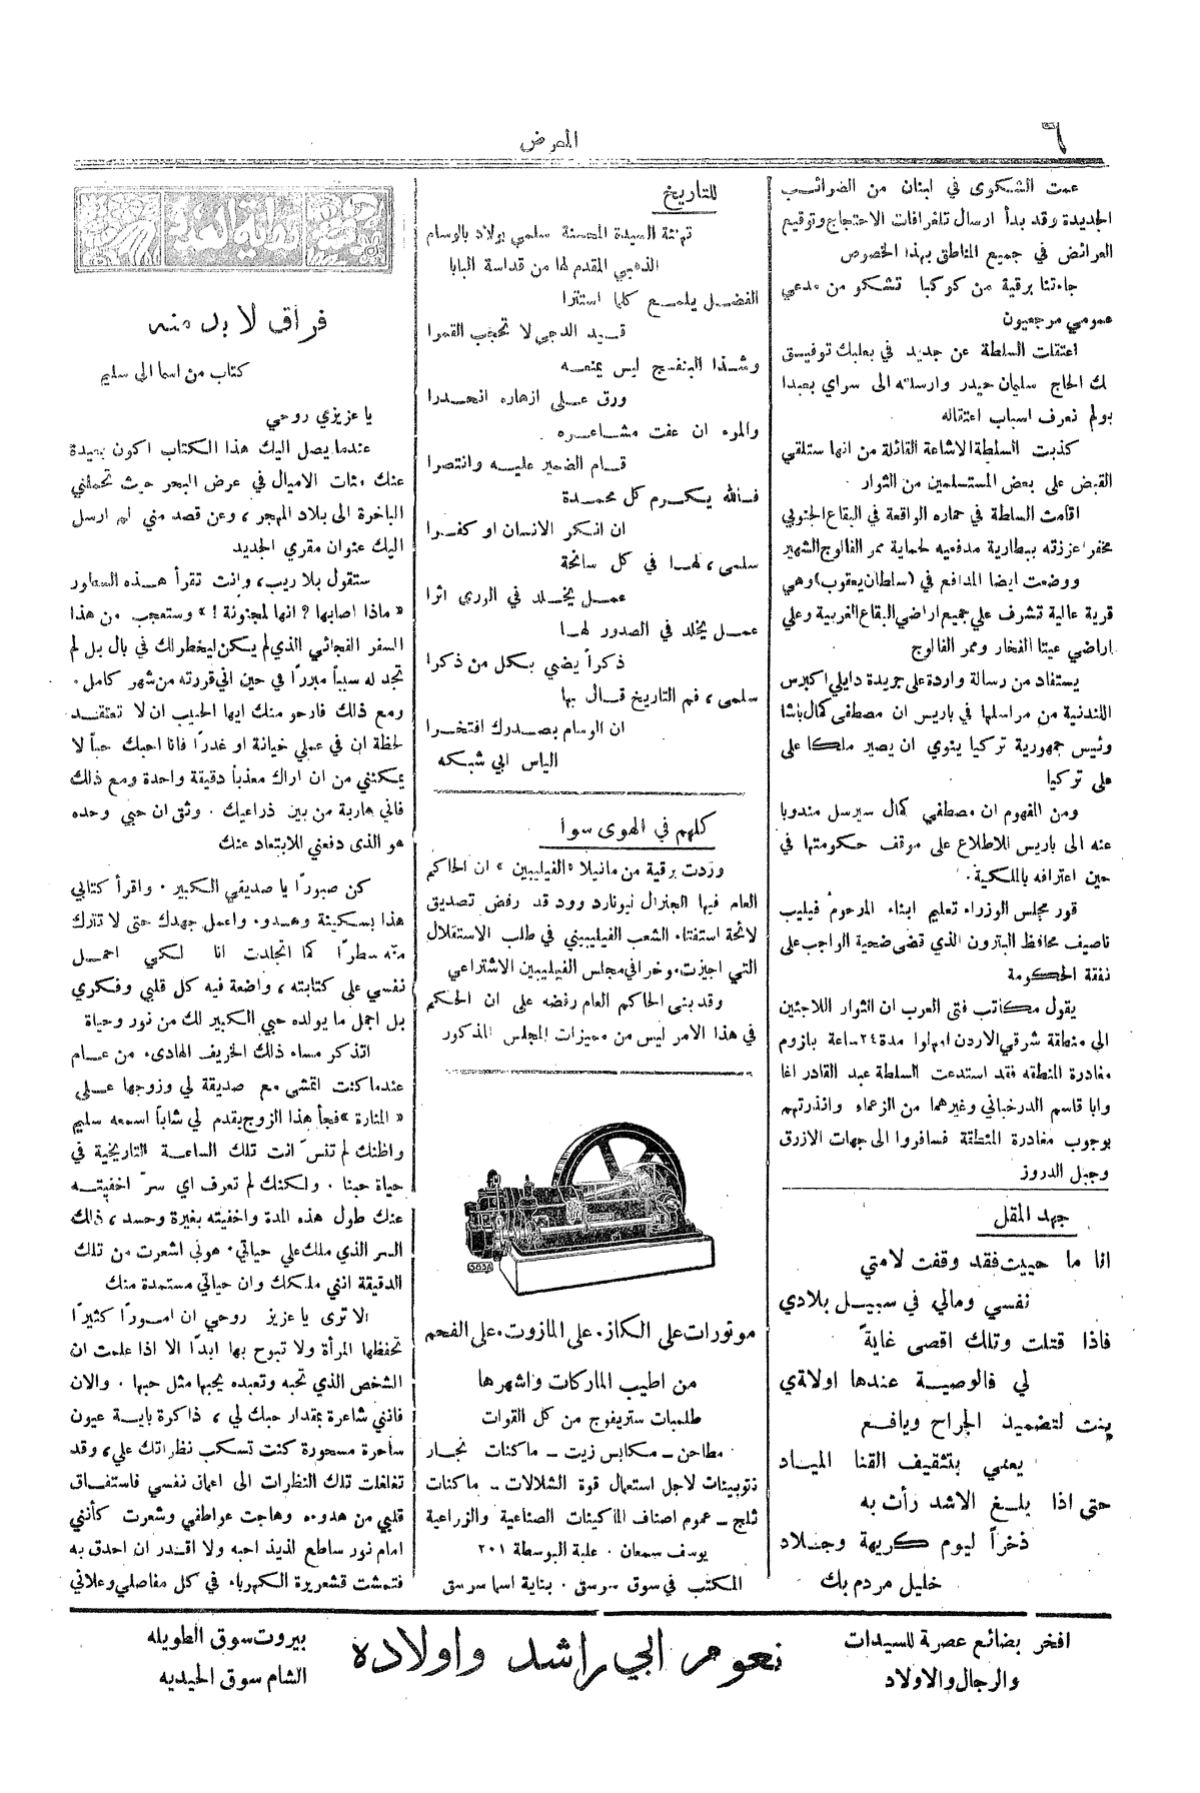 ٦
المعرض
عمت الشكوى في لبنان من الضرائب
الجديدة وقد بدأ ارسال تلغرافات الاحتجاج وتوقيع
العرائض في جميع المناطق بهذا الخصوص
جاءتنا برقية من كوكبا تشكو من مدعي
عمومي مرجعيون
اعتقلت السلطة عن جديد في بعلبك توفيق
بك الحاج سليمان حيدر وارسلته الى سراي بعبدا
ولم نعرف اسباب اعتقاله
كذبت السلطة الاشاعة القائلة من انها ستلقي
القبض على بعض المستسلمين من الثوار .
اقامت السلطة في حماره الواقعة في البقاع الجنوبي
مخفرا عززته ببطارية مدفعيه لحماية ممر الفالوج الشهير
ووضعت ايضا المدافع في (سلطان يعقوب) وهي
قرية عالية تشرف على جميع اراضي البقاع الغربية وعلى
اراضي عيتا الفخار وممر الفالوج
يستفاد من رسالة واردة على جريدة دايلي اكبرس
اللندنية من مراسلها في باريس ان مصطفى كمال باشا
رئيس جمهورية تركيا ينوي ان يصير ملكا على
على تركيا
ومن المفهوم ان مصطفى كمال سيرسل مندوبا
عنه الى باريس للاطلاع على موقف حكومتها في
حين اعترافه بالملكية .
قرر مجلس الوزراء تعليم ابناء المرحوم فيليب
ناصيف محافظ البترون الذي قضى ضحية الواجب على
نفقة الحكومة
يقول مكاتب فتى العرب ان الثوار اللاجئين
الى منطقة شرقي الاردن امهلوا مدة ٢٤ ساعة بلزوم
مغادرة المنطقه فقد استدعت السلطة عبد القادر اغا
وابا قاسم الدرخباني وغيرهما من الزعماء وانذرتهم
بوجوب مغادرة المنطقة فسافروا الى جهات الازرق
وجبل الدروز
جهد المقل
انا ما حييت فقد وقفت لامتي
نفسي ومالي في سبيل بلادي
فاذا قتلت وتلك اقصى غاية
لي فالوصية عندها اولادي
بنت لتضميد الجراح ويافع
يعنى بتثقيف القنا المياد
حتى اذا بلغ الاشد رأت به
ذخراً ليوم كريهة وجلاد
خليل مردم بك
للتاريخ
تهنئة السيدة المحسنة سلمي بولاد بالوسام
الذهبي المقدم لها من قداسة البابا
الفضل يلمع كلما استترا
قيد الدجى لا تحجب القمرا
وشذا البنفسج ليس يمنعه
ورق على ازهاره انحدرا
والمرء ان عفت مشاعره .
قام الضمير عليه وانتصرا
فالله يكرم كل محمدة
ان انكر الانسان او كفرا
سلمى ، لها في كل سانحة
عمل يخلد في الورى اثرا
عمل يخلد في الصدور لها
ذكراً يضي بكل من ذكرا
سلمى ، فم التاريخ قال بها
ان الوسام بصدرك افتخرا
الياس ابي شبكه
كلهم في الهوى سوا
وردت برقية من مانيلا «الفيليبين» ان الحاكم
العام فيها الجنرال ليونارد وود قد رفض تصديق
لائحة استفتاء الشعب الفيليبيني في طلب الاستقلال
التي اجيزت مؤخرا في مجلس الفيليبين الاشتراعي
وقد بنى الحاكم العام رفضه على ان الحكم
في هذا الامر ليس من مميزات المجلس المذكور
موتورات على الكاز . على المازوت . على الفحم
من اطيب الماركات واشهرها
طلمبات ستريفوج من كل القوات
مطاحن ــ مكابس زيت ــ ماكنات نجار
نتوبينات لاجل استعمال قوة الشلالات ــ ماكنات
ثلج ــ عموم اصناف الماكينات الصناعية والزراعية
يوسف سمعان . علبة البوسطة ٢٠١
المكتب في سوق سرسق . بناية اسما سرسق
فراق لا بد منه
كتاب من اسما الى سليم
يا عزيزي روحي
عندما يصل اليك هذا الكتاب اكون بعيدة
عنك مئات الاميال في عرض البحر حيث تحملني
الباخرة الى بلاد المهجر ، وعن قصد مني لم ارسل
اليك عنوان مقري الجديد
ستقول بلا ريب ، وانت تقرأ هذه السطور
« ماذا اصابها ? انها لمجنونة ! » وستعجب من هذا
السفر الفجائي الذي لم يكن ليخطر لك في بال بل لم
تجد له سبباً مبرراً في حين اني قررته من شهر كامل .
ومع ذلك فارجو منك ايها الحبيب ان لا تعتقد
لحظة ان في عملي خيانة او غدراً فانا احبك حباً لا
يمكنني من ان اراك معذباً دقيقة واحدة ومع ذلك
فاني هاربة من بين ذراعيك . وثق ان حبي وحده
هو الذى دفعني للابتعاد عنك
كن صبوراً يا صديقي الكبير . واقرأ كتابي
هذا بسكينة وهدوء . واعمل جهدك حتى لا تترك
منه سطراً كما اتجلدت انا لكي احمل
نفسي على كتابته ، واضعة فيه كل قلبي وفكري
بل اجمل ما يولده حبي الكبير لك من نور وحياة
اتذكر مساء ذلك الخريف الهادىء من عام
عندما كنت اتمشى مع صديقة لي وزوجها على
« المنارة » فجأ هذا الزوج يقدم لي شاباً اسمعه سليم
واظنك لم تنس انت تلك الساعة التاريخية في
حياة حبنا . ولكنك لم تعرف اي سرّ اخفيته
عنك طول هذه المدة واخفيته بغيرة وحسد ، ذلك
السر الذي ملك علي حياتي . هو اني اشعرت من تلك
الدقيقة انني ملكك وان حياتي مستمدة منك
الا ترى يا عزيز روحي ان اموراً كثيراً
تحفظها المرأة ولا تبوح بها ابداً الا اذا علمت ان
الشخص الذي تحبه وتعبده يحبها مثل حبها . والان
فانني شاعرة بمقدار حبك لي ، ذاكرة باية عيون
ساحرة مسحورة كنت تسكب نظراتك علي ، وقد
تغلغلت تلك النظرات الى اعماق نفسي فاستفاق
قلبي من هدوءه وهاجت عواطفي وشعرت كأنني
امام نور ساطع لذيذ احبه ولا اقدر ان احدق به
فتمشت قشعريرة الكهرباء في كل مفاصلي وعلاني
افخر بضائع عصرية للسيدات
والرجال والاولاد
نعوم ابي راشد واولاده
بيروت سوق الطويله
الشام سوق الحميديه